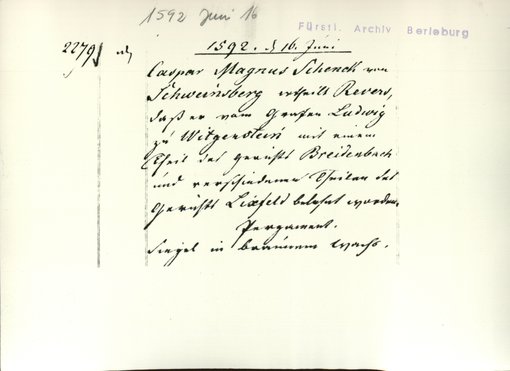 1592 Juni 16
Fürstl. Archiv Berleburg
2279
1592. d 16. Juni.
Caspar Magnus Schenck von
Schweinsberg ertheilt Revers,
daß er vom Grafen Ludwig
zu Witgenstein mit einem
Theil des Gerichts Breidenbach
und verschiedenen Theilen des
Gerichts Lixfeld belehnt worden.
Pergament.
Siegel in braunem Wachs.